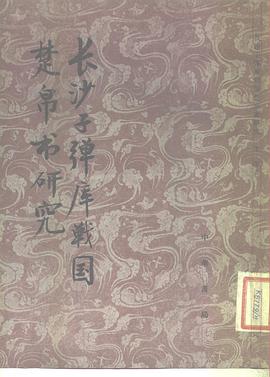 长沙子弹库战国
楚帛书研究
中华书局